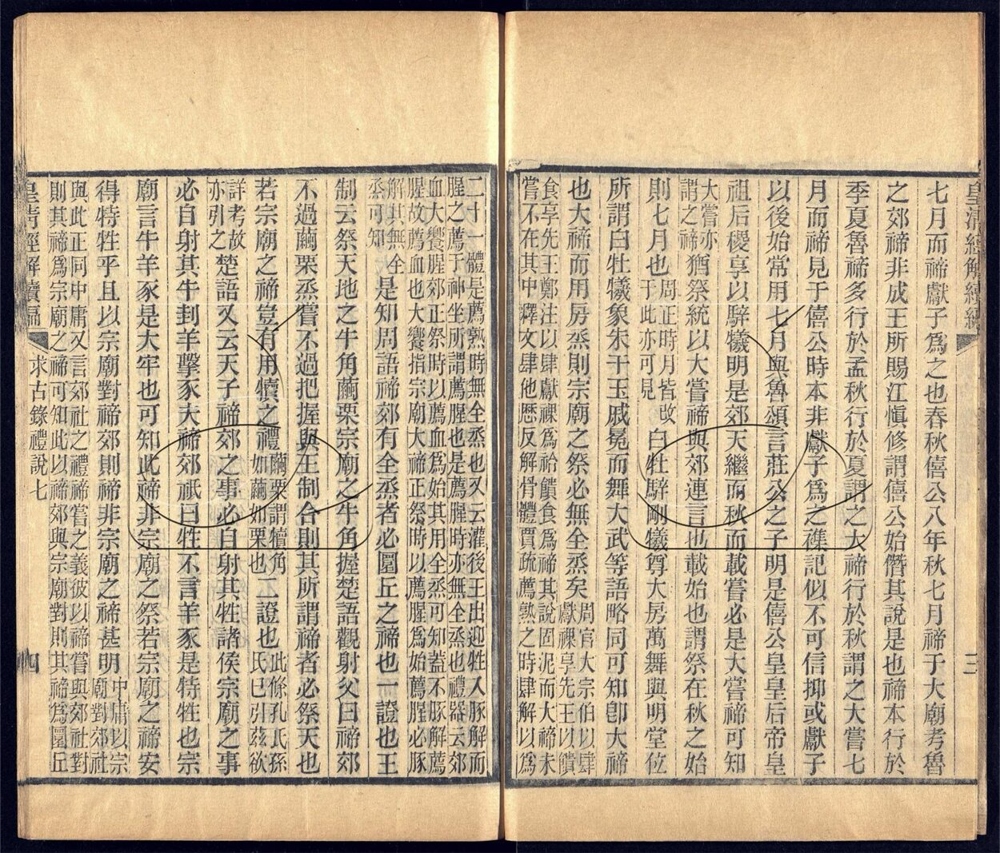 皇清經解續編
三
七月而禘獻子爲之也春秋僖公八年秋七月禘于大廟考魯
之郊禘非成王所賜江愼修謂僖公始僭其說是也禘本行於
季夏魯禘多行於孟秋行於夏謂之大禘行於秋謂之大嘗七
月而禘見于僖公時本非獻子爲之襍記似不可信抑或獻子
以後始常用七月與魯頌言莊公之子明是僖公皇皇后帝皇
祖后稷享以騂犧明是郊天繼而秋而載嘗必是大嘗禘可知
大嘗亦
謂之禘
猶祭統以大嘗禘與郊連言也載始也謂祭在秋之始
則七月也
周正時月皆改
于此亦可見
白牡騂剛犧尊大房萬舞與明堂位
所謂白牡犧象朱干玉戚冕而舞大武等語略同可知卽大禘
也大禘而用房烝則宗廟之祭必無全烝矣
周官大宗伯以肆
獻祼享先王以饋
食享先王鄭注以肆獻祼爲祫饋食爲禘其說固泥而大禘未
嘗不在其中釋文肆他歷反解骨體賈疏薦熟之時肆解以爲
二十一體是薦熟時無全烝也又云灌後王出迎牲入豚解而
腥之薦于神坐所謂薦腥也是薦腥時亦無全烝也禮器云郊
血大饗腥郊正祭時以薦血爲始其用全烝可知蓋不豚解薦
腥故薦血也大饗指宗廟大禘正祭時以薦腥爲始薦腥必豚
解其無全
烝可知
是知周語郊有全烝者必圜丘之禘也一證也王
制云祭天地之牛角繭栗宗廟之牛角握楚語觀射父曰禘郊
不過繭栗烝嘗不過把握與王制合則其所謂禘者必祭天也
若宗廟之禘豈有用犢之禮
繭栗謂犢角
如繭如栗也
二證也
此條孔氏孫
氏已引茲欲
詳考故
亦引之
楚語又云天子禘郊之事必自射其牲諸侯宗廟之事
必自射其牛刲羊擊豕大禘郊祇曰牲不言羊豕是特牲也宗
廟言牛羊豕是大牢也可知此禘非宗廟之祭若宗廟之禘安
得特牲乎且以宗廟對禘郊則禘非宗廟之禘甚明
中庸以宗
廟對郊社
與此正同中庸又言郊社之禮禘嘗之義彼以禘嘗與郊社對
則其禘爲宗廟之禘可知此以禘郊與宗廟對則其禘爲圜丘
皇清經解續編
求古錄禮說七
四